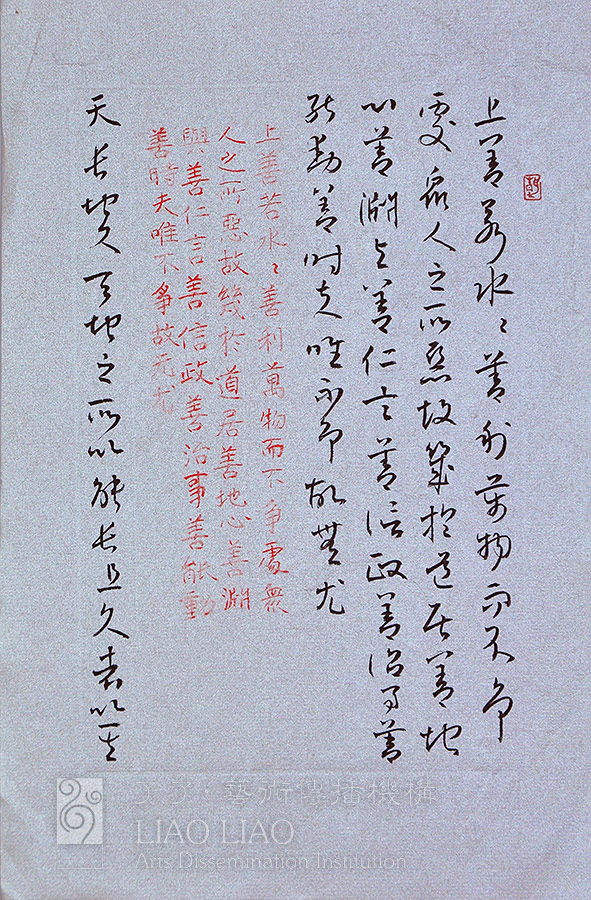 上善若水〻善利萬物而不争
處衆人之所惡故幾於道居善地
心善淵与善仁言善信政善治事善
能動善時夫唯不争故無尤
上善若水〻善利萬物而不争處衆
人之所惡故幾於道居善地心善淵
與善仁言善信政善治事善能動
善時夫唯不争故无尤
天長地久天地之所以能長且久者以其
了了·藝術傳播機構
LIAO LIAO
Arts Dissemination Institution